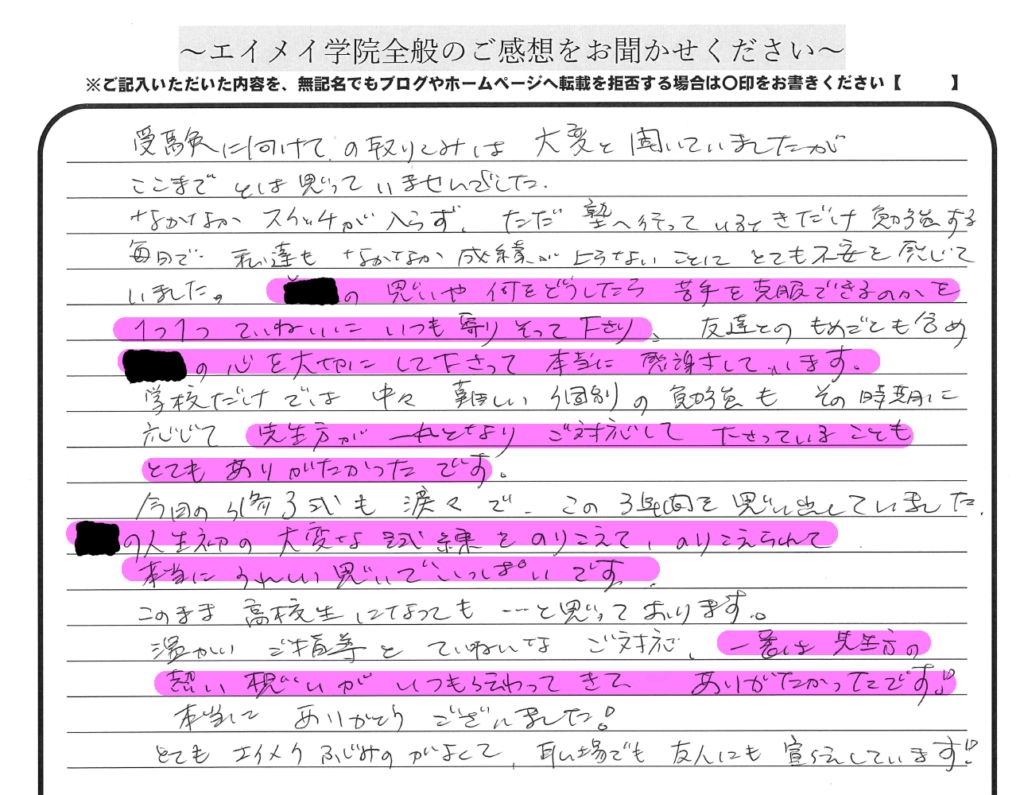 ～エイメイ学院全般のご感想をお聞かせください～
※ご記入いただいた内容を、無記名でもブログやホームページへ転載を拒否する場合は〇印をお書きください【　　】
受験に向けての取りくみは 大変と聞いていましたが
ここまでとは思っていませんでした。
なかなかスイッチが入らず、ただ塾へ行っているときだけ勉強する
毎日で 私達もなかなか成績が上らないことにとても不安を感じて
いました。 の思いや何をどうしたら苦手を克服できるのかを
1つ1つていねいにいつも寄りそって下さり、友達とのもめごとも含め
の心を大切にして下さって本当に感謝しています。
学校だけでは中々難しい個別の勉強もその時期に
応じて先生方が一丸となりご対応して下さっていることも
とてもありがたかったです。
今回の修了式も涙々で、この3年間を思い出していました。
の人生初の大変な試練をのりこえて、のりこえられて
本当にうれしい思いでいっぱいです。
このまま高校生になっても…と思っております。
温かいご指導とていねいなご対応、一番は先生方の
熱い想いがいつも伝わってきて、ありがたかったです!
本当にありがとうございました!
とてもエイメイふじみのがよくて、職場でも友人にも宣伝しています!